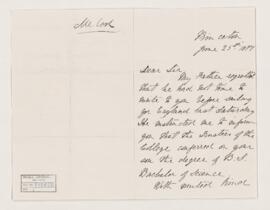 Mc Cook
June 25th 1884
Dear Sir
My Father regretted
that he had not time to
write to you before sailing
for England last Saturday
He instructed me to inform
you that the Trustees of the
College conferred on your
son the degree of B.S.
Bachelor of Science
With